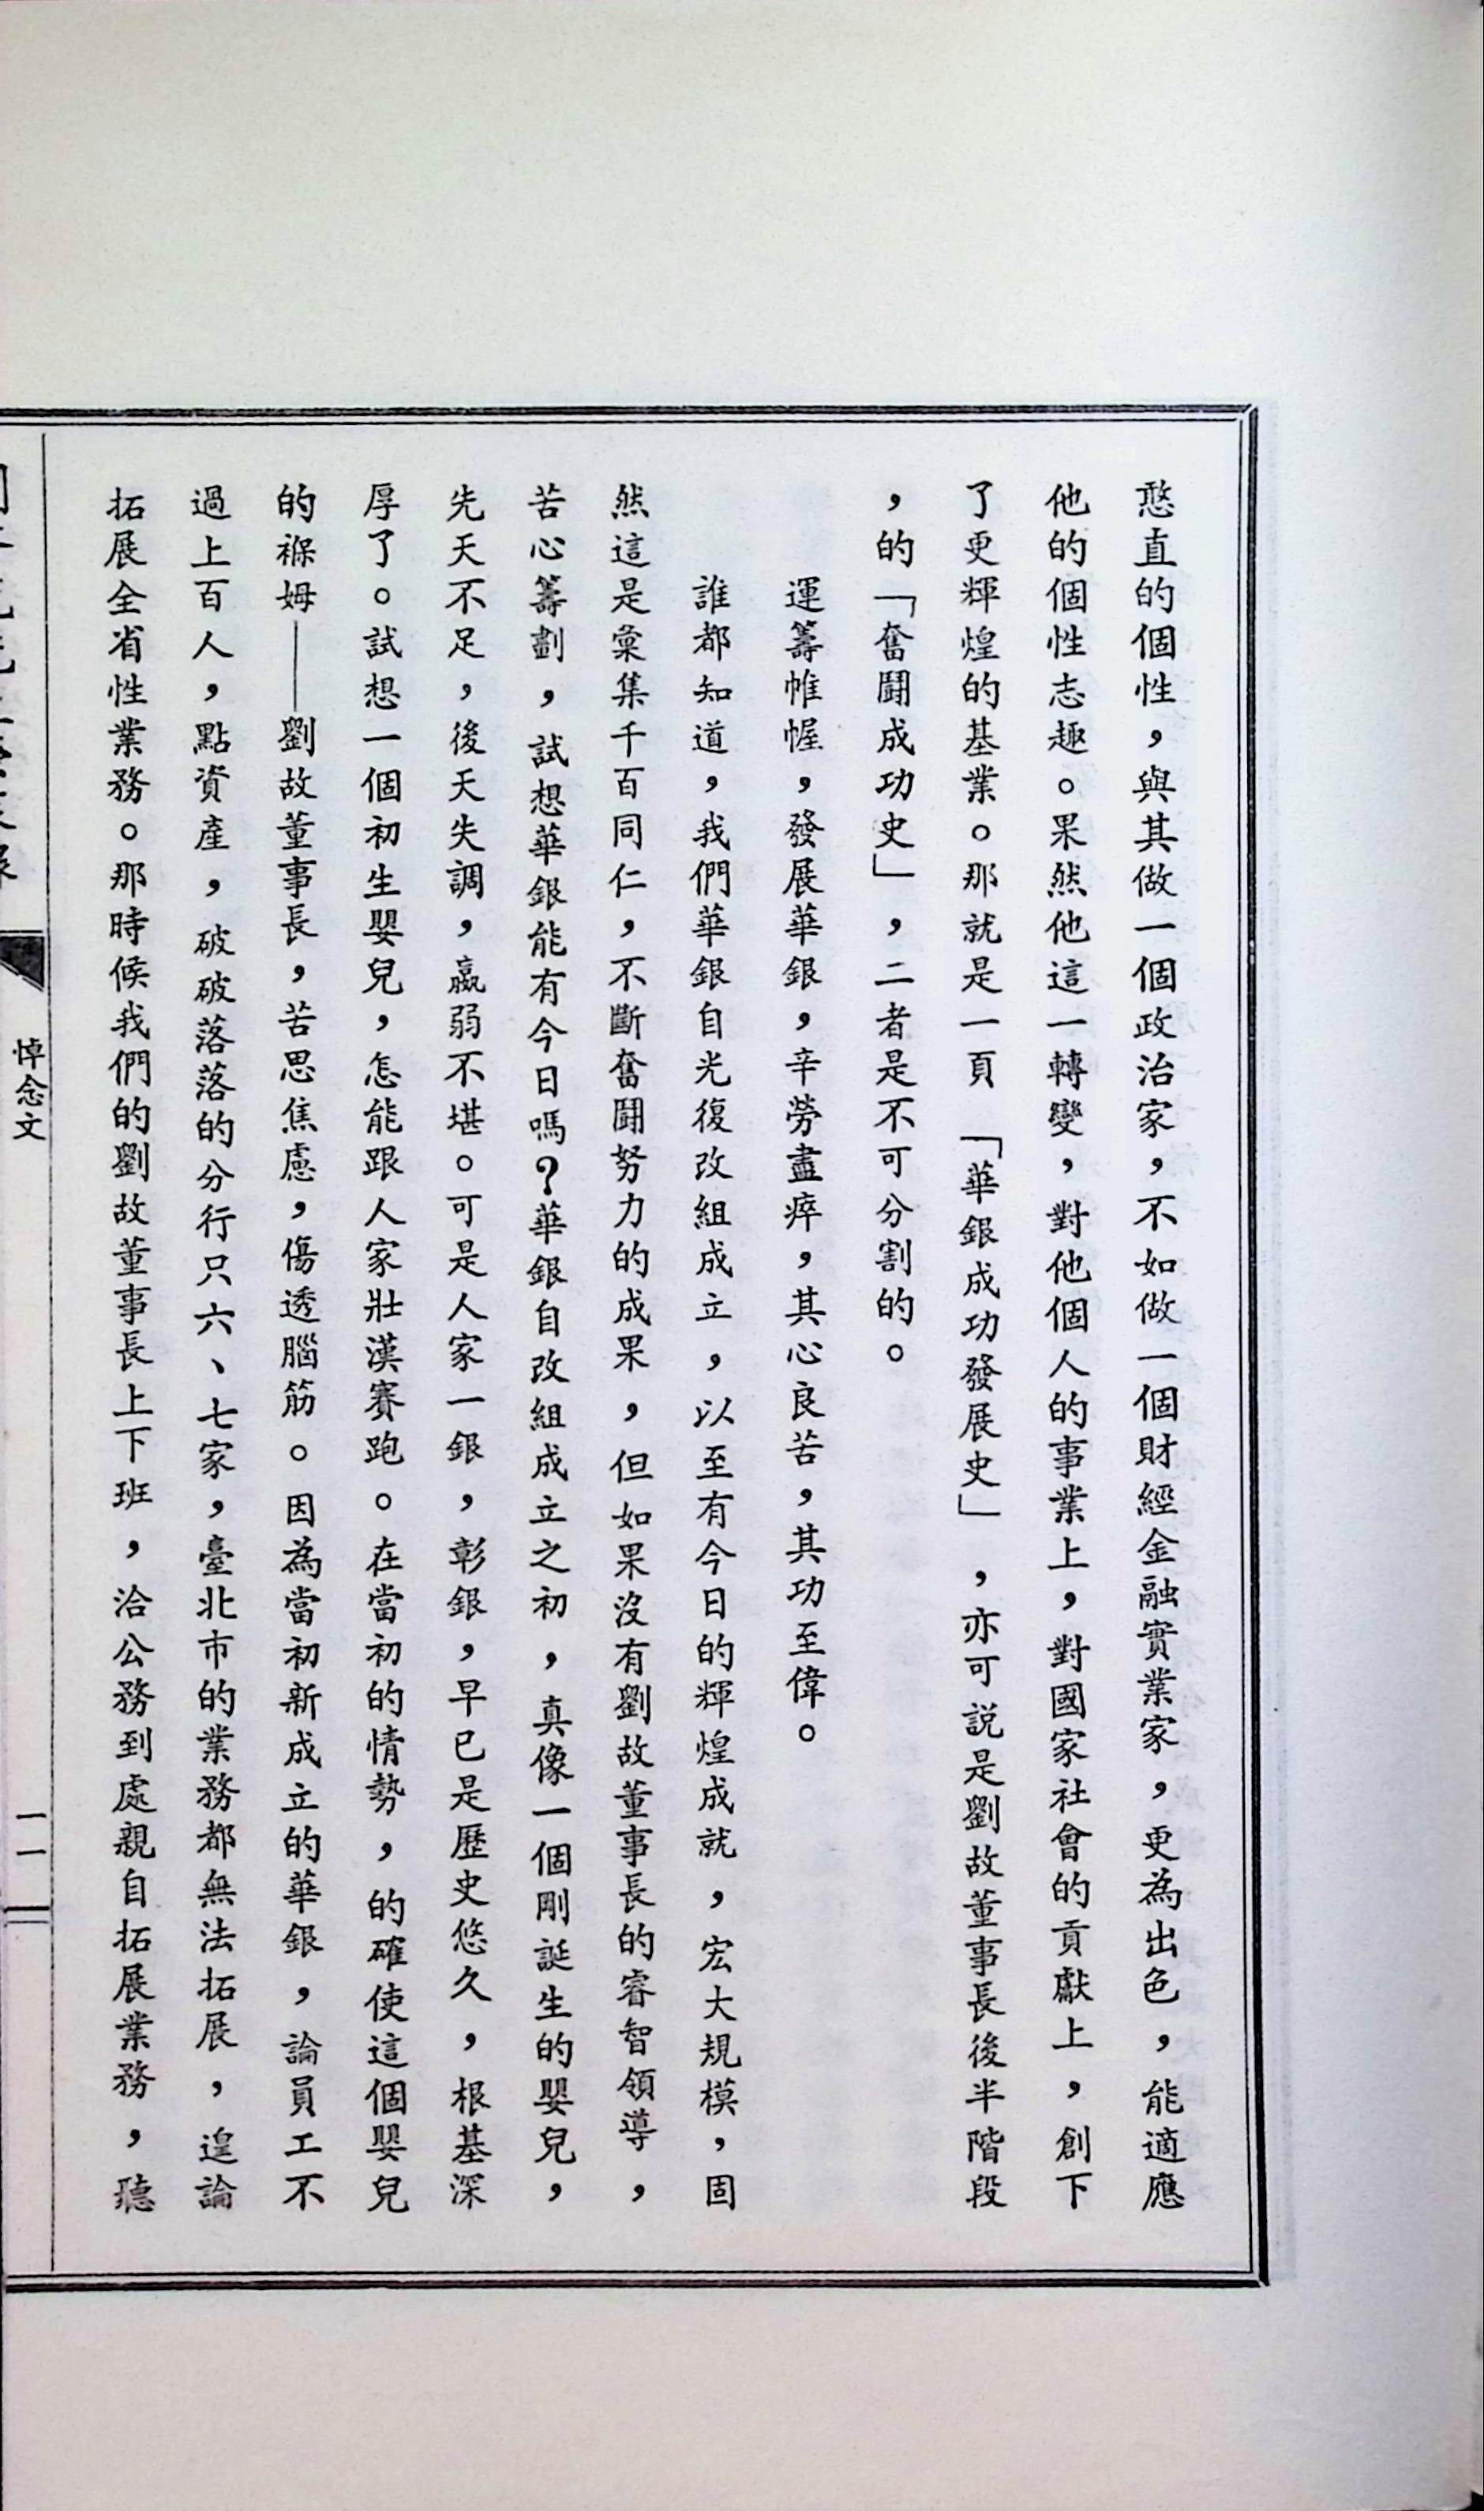 憨直的個性，與其做一個政治家，不如做一個財經金融實業家，更為出色，能適應
他的個性志趣。果然他這一轉變，對他個人的事業上，對國家社會的貢獻上，創下
了更輝煌的基業。那就是一頁「華銀成功發展史」，亦可說是劉故董事長後半階段
，的「奮鬪成功史」，二者是不可分割的。
運籌帷幄，發展華銀，辛勞盡瘁，其心良苦，其功至偉。
誰都知道，我們華銀自光復改組成立，以至有今日的輝煌成就，宏大規模，固
然這是彙集千百同仁，不斷奮鬪努力的成果，但如果沒有劉故董事長的睿智領導，
苦心籌劃，試想華銀能有今日嗎？華銀自改組成立之初，真像一個剛誕生的嬰兒，
先天不足，後天失調，羸弱不堪。可是人家一銀，彰銀，早已是歷史悠久，根基深
厚了。試想一個初生嬰兒，怎能跟人家壯漢賽跑。在當初的情勢，的確使這個嬰兒
的褓姆——劉故董事長，苦思焦慮，傷透腦筋。因為當初新成立的華銀，論員工不
過上百人，點資產，破破落落的分行只六、七家，臺北市的業務都無法拓展，遑論
拓展全省性業務。那時候我們的劉故董事長上下班，洽公務到處親自拓展業務，聽
悼念文
一一